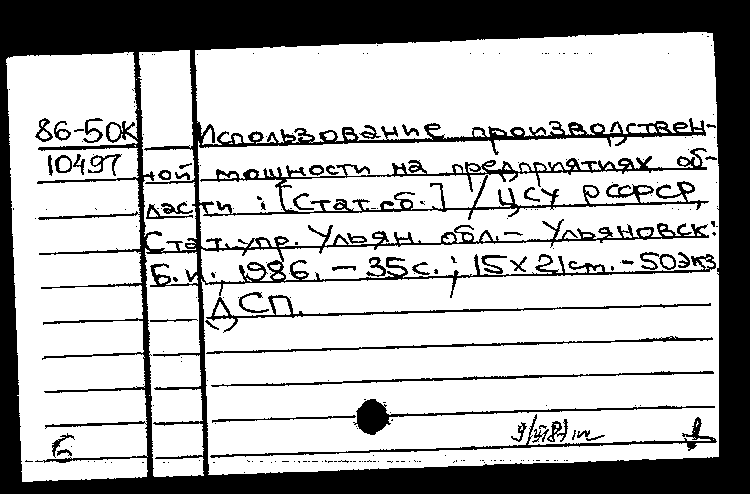 86-50К Использование производствен-
10497 ной мощности на предприятиях об-
ласти : [Стат. сб.] / ЦСУ РСФСР,
Стат. упр. Ульян. обл. - Ульяновск:
Б.и., 1986. - 35 с. ; 15 х 21 см. - 50 экз.
ДСП.
6